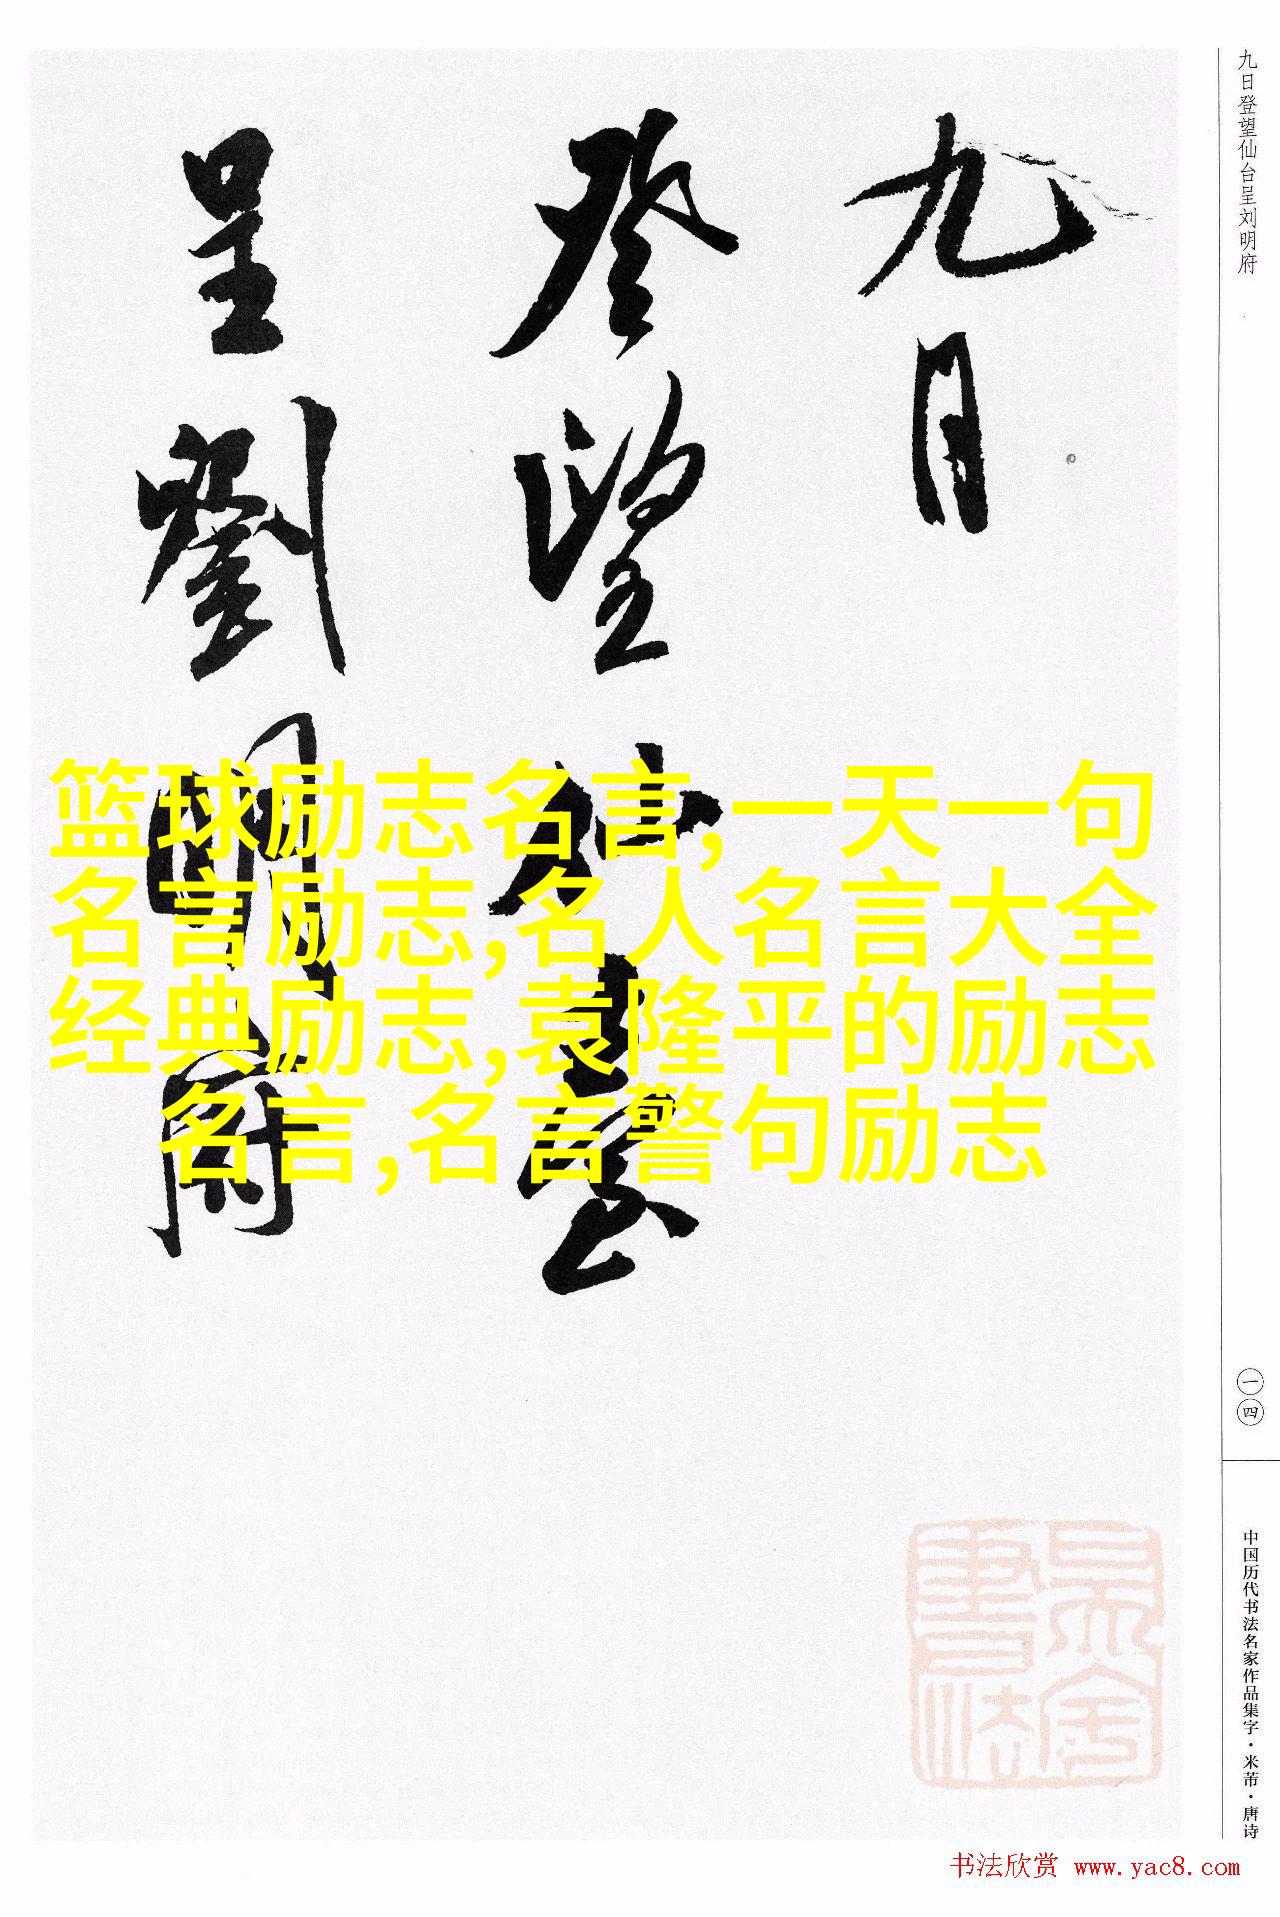 九日
登望仙臺
呈劉明府
九日登望仙台呈刘明府
篮球励志名言,一天一句
名言励志,名人名言大全
经典励志,袁隆平的励志
名言,名言警句励志
一四
中国历代书法名家作品集字·米芾·唐诗
书法欣赏 www.yac8.com